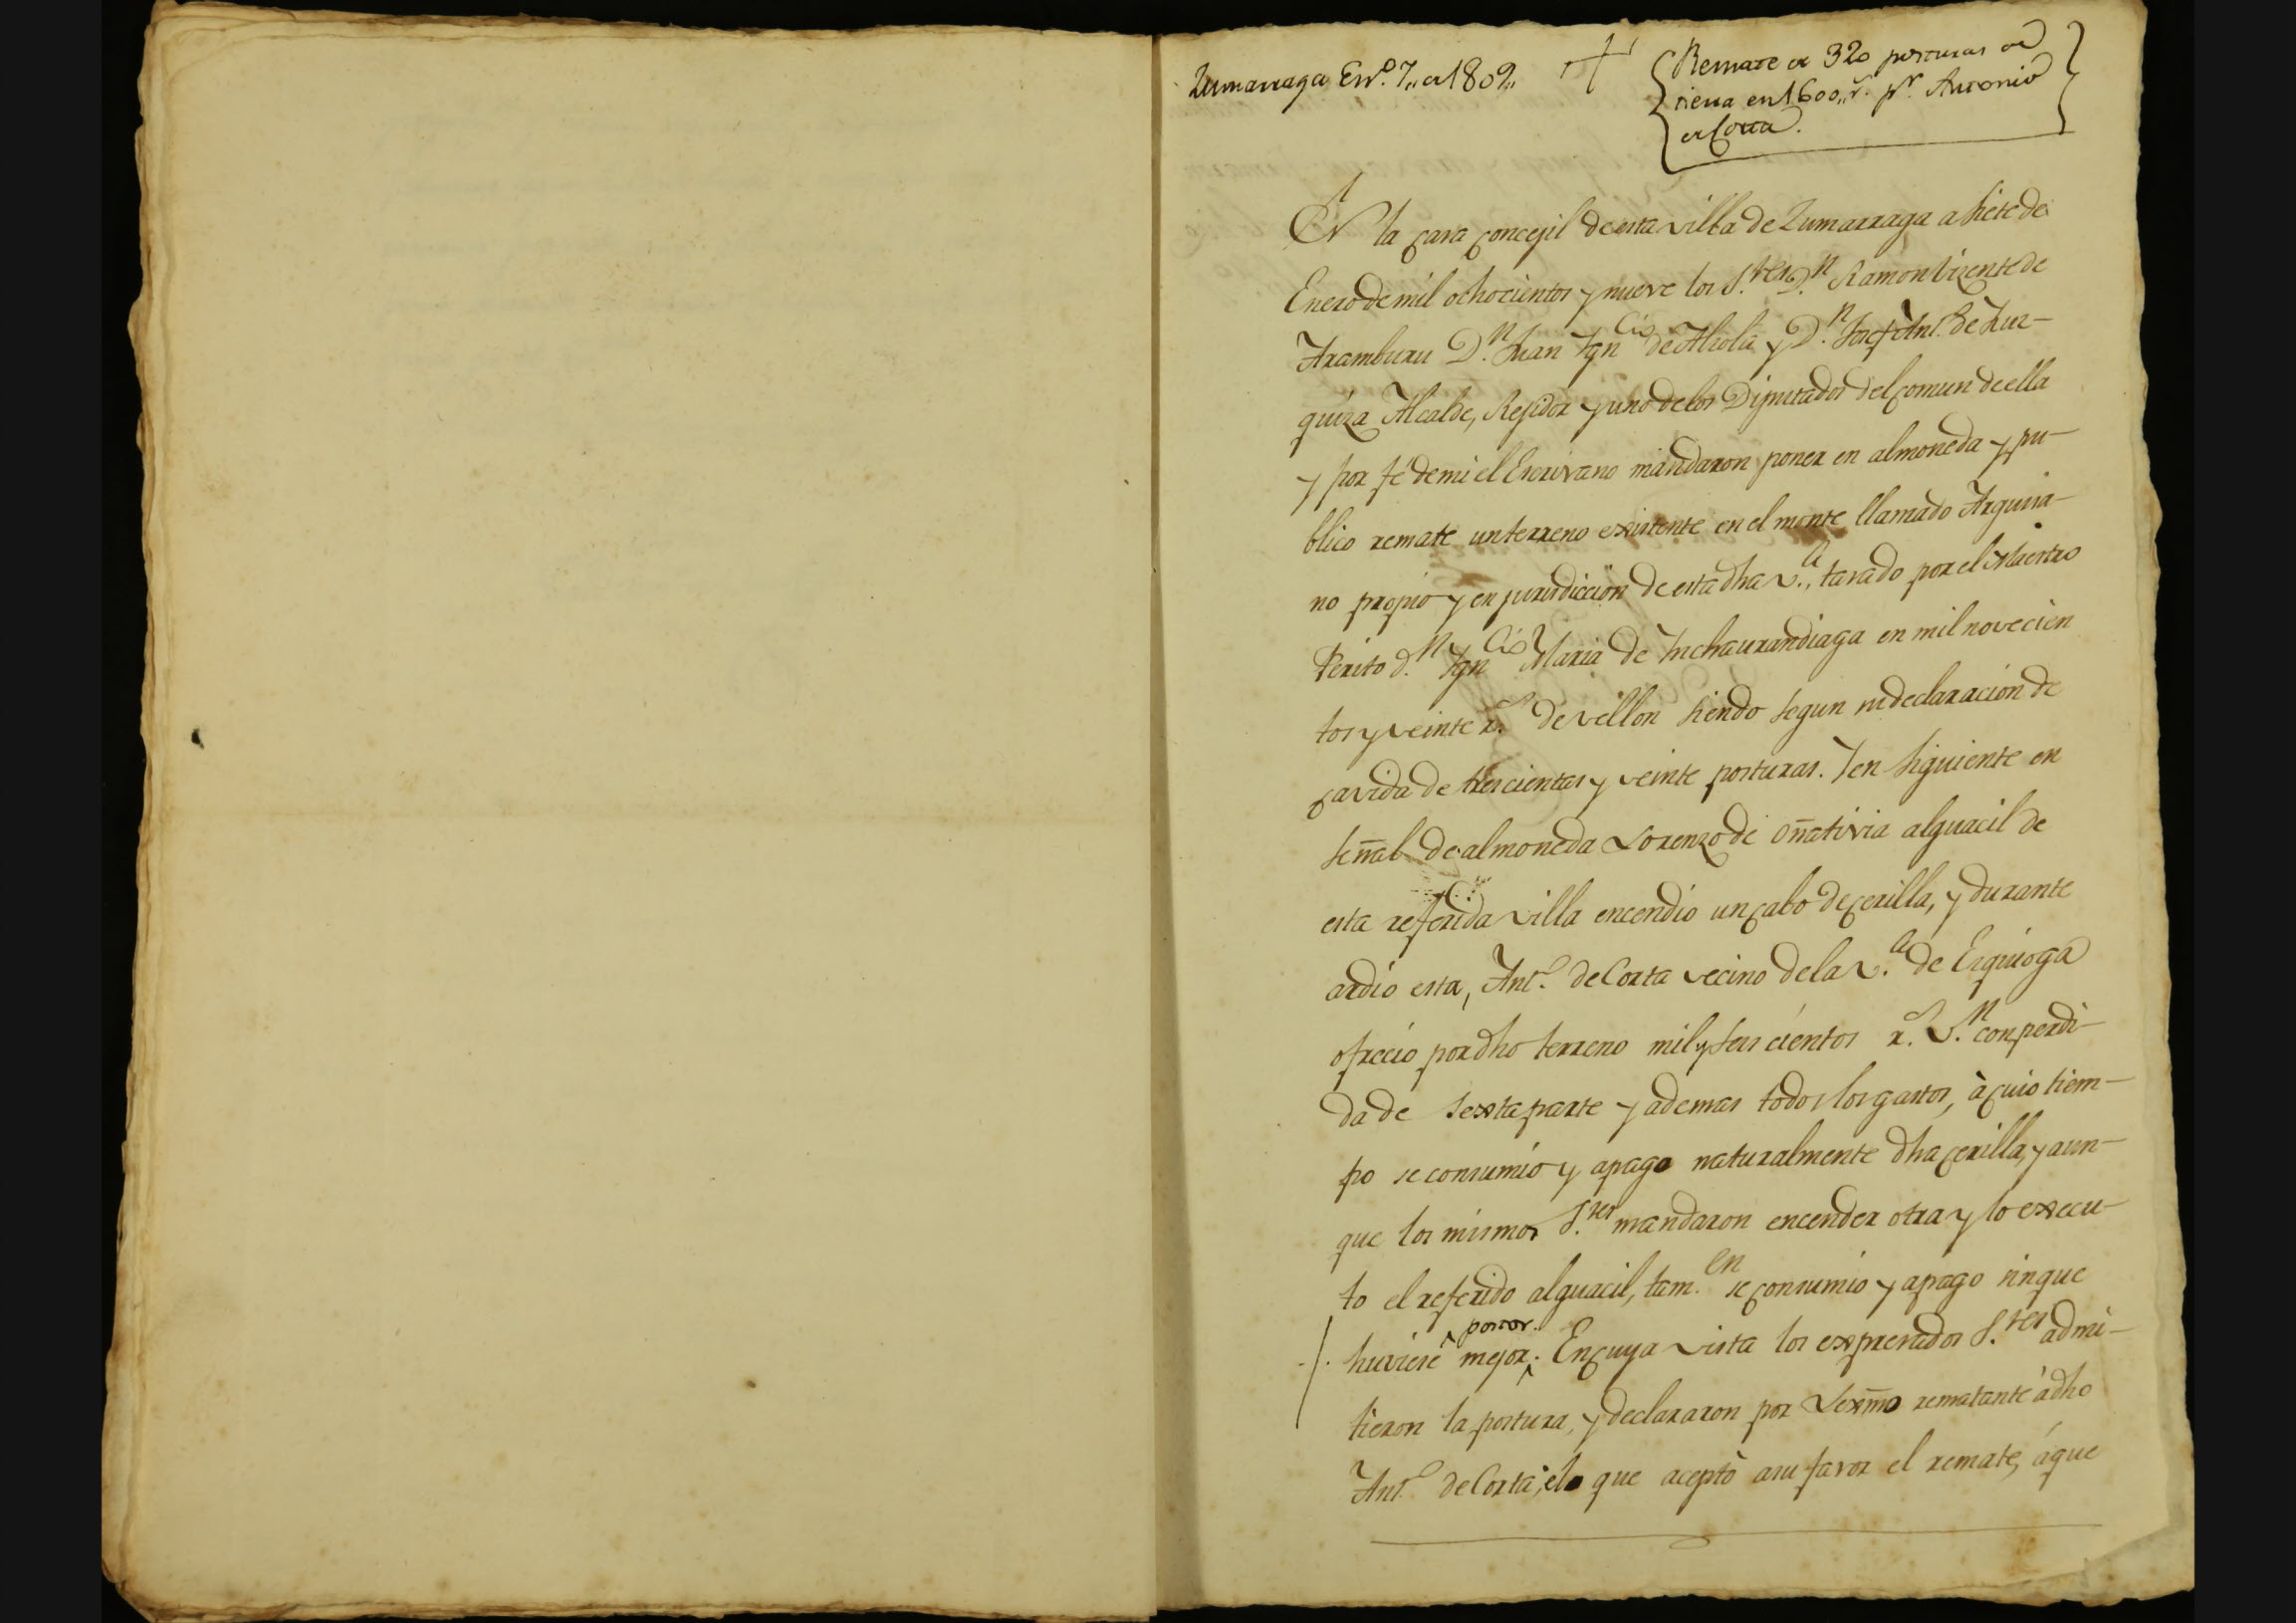 Zumarraga En.º 7,, de 1809,,
Remate de 320 posturas de
tierra en 1600,, r.s p.r Antonio
de Corta.
En la casa concejil de esta villa de Zumarraga a siete de
Enero de mil ochocientos y nueve los S.res D.n Ramon Vizente de
Aramburu D.n Juan Ygn.cio de Alzola y D.n Josef Ant.º de Zur-
quiza Alcalde, Regidor y uno de los Diputados del comun de ella
y por fé de mi el Escrivano mandaron poner en almoneda y pu-
blico remate un terreno existente en el monte llamado Arguisa-
no propio y en jurisdiccion de esta dha v.ª, tasado por el Maestro
Perito d.n Ygn.cio Maria de Ynchaurandiaga en mil novecien
tos y veinte r.s de vellon siendo segun su declaracion de
cavida de trescientas y veinte posturas. Yen siguiente en
señal de almoneda Lorenzo de Oñativia alguacil de
esta referida villa encendio un cabo de cerilla, y durante
ardio esta, Ant.º de Corta vecino de la v.ª de Ezquioga
ofrecio por dho terreno mil y seis cientos r.s v.n con perdi-
da de sexta parte y ademas todos los gastos, à cuio tiem-
po se consumio y apago naturalmente dha cerilla, y aun-
que los mismos S.res mandaron encender otra y lo execu-
to el referido alguacil, tam.en se consumio y apago sin que
huviese postor mejor. En cuya vista los expresados S.res admi-
tieron la postura, y declararon por Lexmo rematante á dho
Ant.º de Corta; el que aceptò a su favor el remate, á que